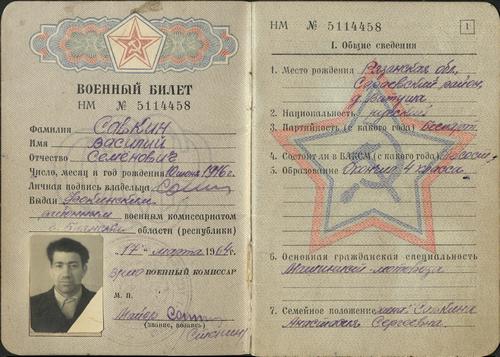 ВОЕННЫЙ БИЛЕТ
НМ № 5114458
Фамилия Совкин
Имя Василий
Отчество Семенович
Число, месяц и год рождения 10 июня 1946 г.
Личная подпись владельца
Выдан
районным военным комиссариатом
области (республики)
17 марта 1964 г.
ВОЕННЫЙ КОМИССАР
М. П.
Майор
(звание, подпись)
НМ № 5114458
1
I. Общие сведения
1. Место рождения Рязанская обл,
Сараевский район,
д.
2. Национальность русский
3. Партийность (с какого года) беспарт.
4. Состоит ли в ВЛКСМ (с какого года)
5. Образование Окончил 4 класса
6. Основная гражданская специальность
7. Семейное положение жена Совкина
Анастасия Сергеевна.